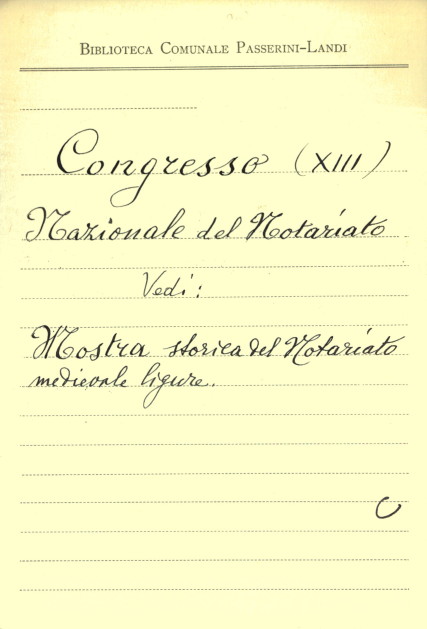 Biblioteca Comunale Passerini-Landi
Congresso (XIII)
Nazionale del Notariato
Vedi:
Mostra storica del Notariato
medievale ligure.
C